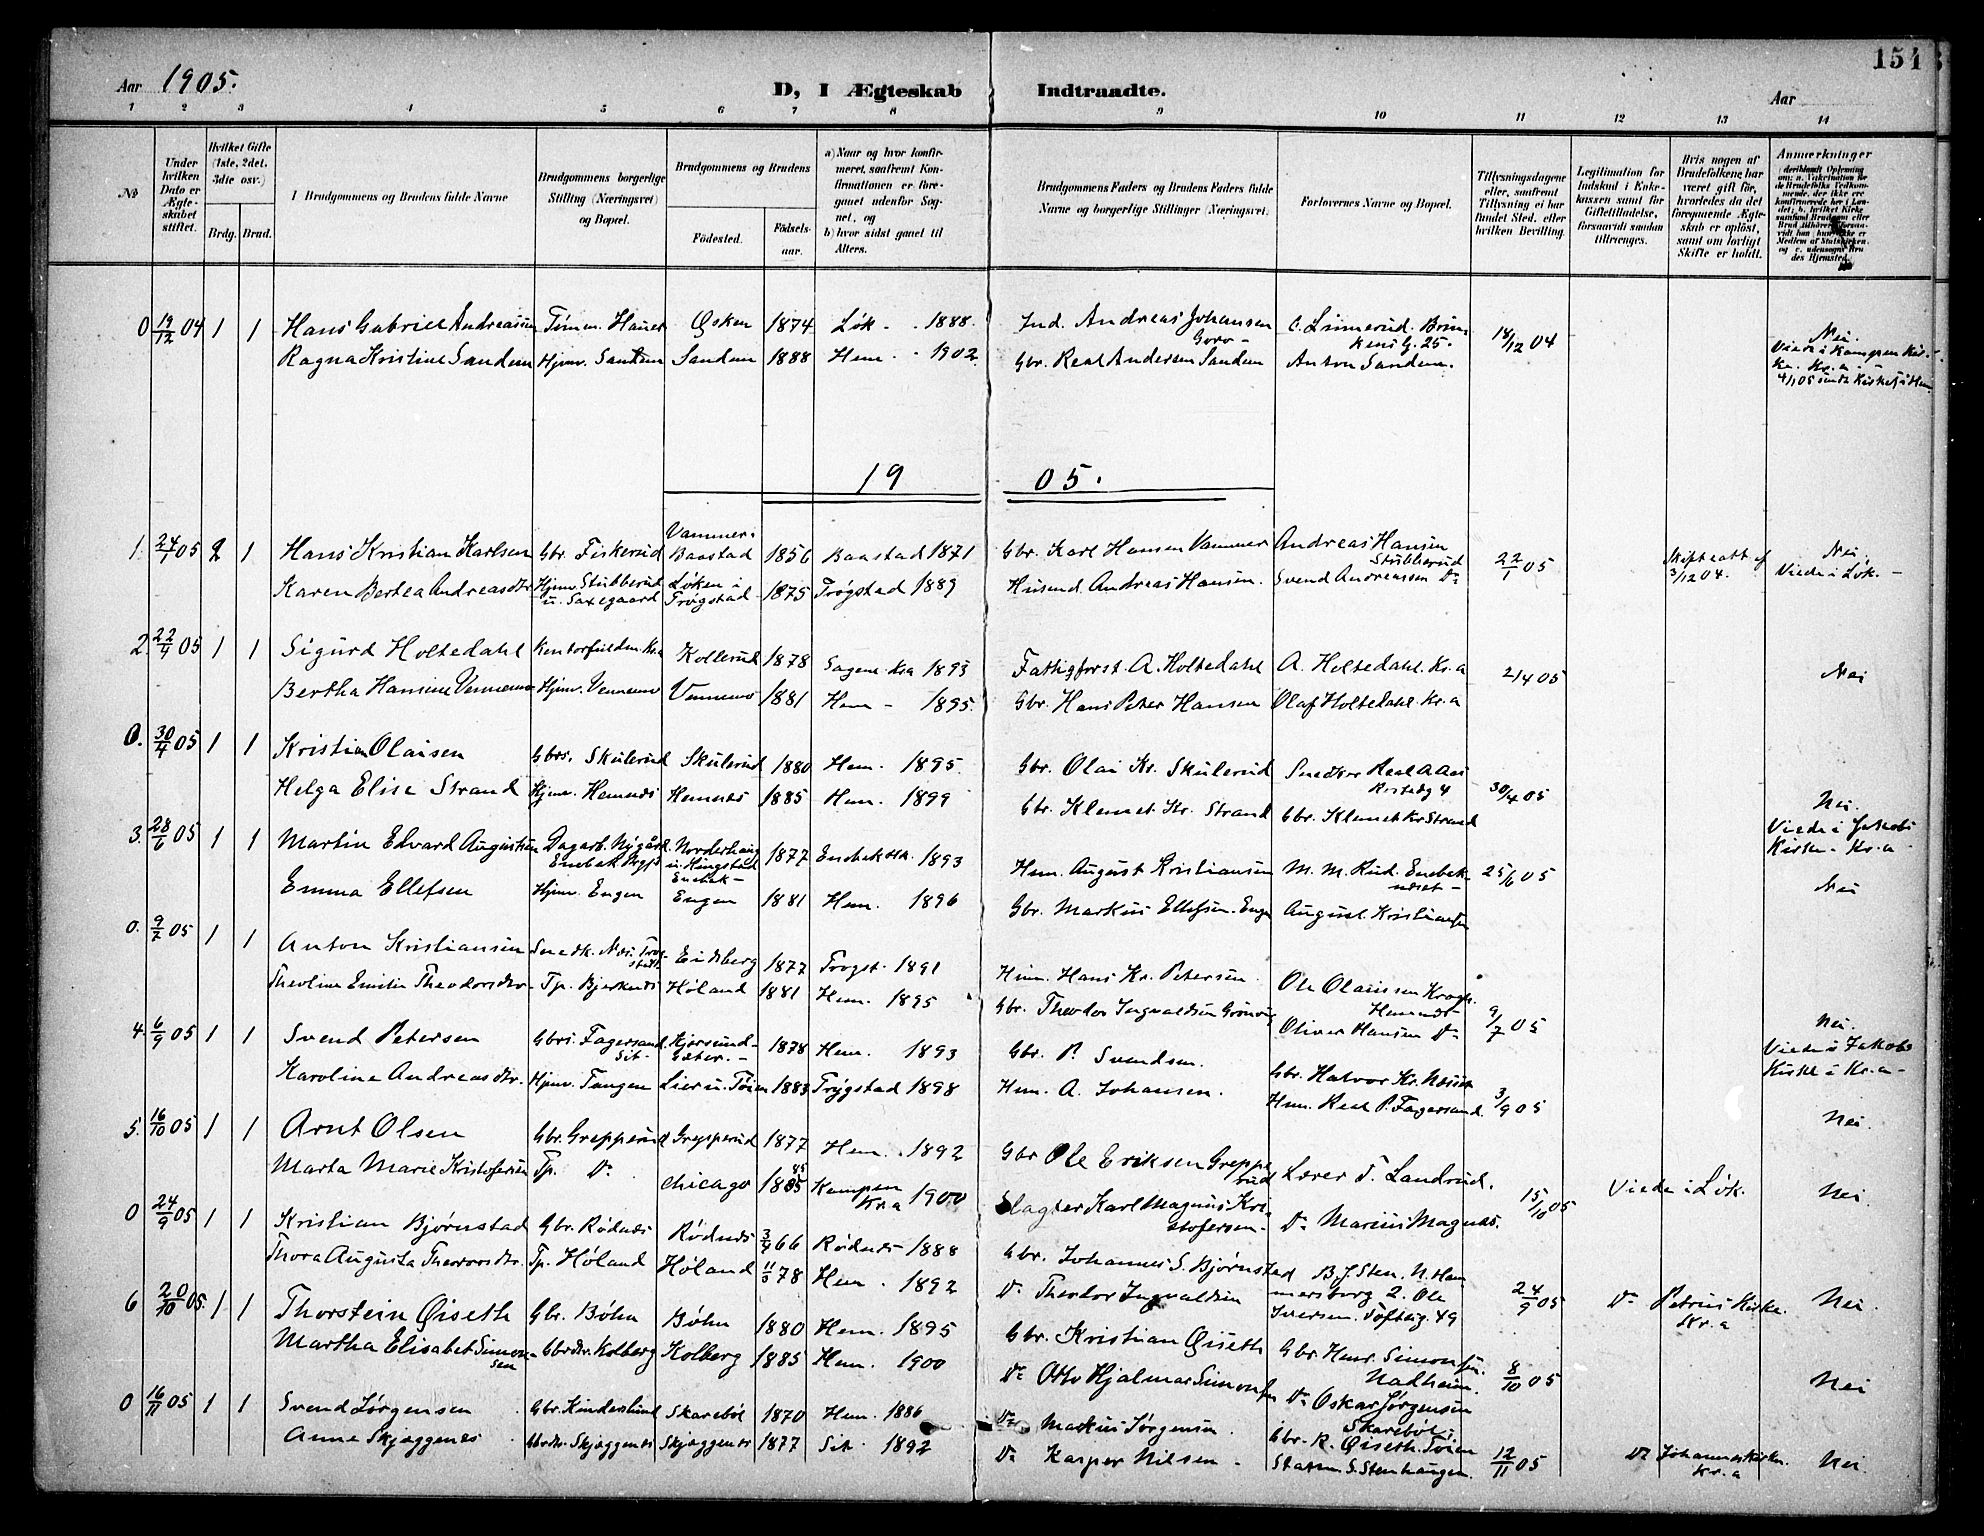 154
Aar 1905.
D, I Ægteskab Indtraadte.
Aar
1 2 3 4 5 6 7 8 9 10 11 12 13 14
No
Under hvilken Dato er Ægteskabet stiftet.
Hvilket Gifte (1ste, 2det, 3die osv.)
Brdg. Brud.
I Brudgommens og Brudens fulde Navne
Brudgommens borgerlige Stilling (Næringsvei) og Bopæl.
Brudgommens og Brudens
Födested.
Födselsaar.
a) Naar og hvor konfirmeret, samt om Konfirmationen er foregaaet udenfor Sognet, og
b) hvor sidst gaaet til Alters.
Brudgommens Faders og Brudens Faders fulde Navne og borgerlige Stillinger (Næringsvei.
Forlovernes Navne og Bopæl.
Tillysningsdagene eller, saafremt Tillysning ei har fundet Sted, efter hvilken Bevilling.
Legitimation for Indskud i Enkekassen samt for Giftetilladelse, forsaavidt saadan tiltrænges.
Hvis nogen af Brudefolkene har været gift før, hvorledes da det foregaaende Ægteskab er opløst, samt om lovligt Skifte er holdt.
Anmærkninger
0 19/12 04 1 1 Hans Gabriel Andreassen Tømm. Hauer Øsken 1874 Løk - 1888. Ind. Andreas Johansen Goro - C. Linnerud. Brinkens G. 25- 18/12 04 Nei.
Ragna Kristine Sandem Hjmv. Sandem Sandem 1888 Hem - 1902. Gbr. Real Andersen Sandem Anton Sandem. Viede i Kampen Kirke. Kr.a -
1905.
1. 24/1 05 2 1 Hans Kristian Karlsen Gbr. Fiskerud Vammer i Baastad 1856 Baastad 1871 Gbr. Karl Hansen Vammer Andreas Hansen Stubberud 22/1 05 Skifteatt af 3/12 04. Nei.
Karen Bertea Andreasdtr Hjmv. Stubberud u. Saxegaard Løken i Trøgstad 1875 Trøgstad 1889 Husmd. Andreas Hansen. Svend Andreassen Do Viede i Løk. -
2. 22/4 05 1 1 Sigurd Holtedahl Kontorfuldm. Kr.a Kollerud 1878 Sagene Kra 1893 Fattigforst. A. Holtedahl A. Holtedahl. Kr.a 2/4 05 Nei
Bertha Hansine Vennemo Hjmv. Vennemo Vennemo 1881 Hem - 1895. Gbr. Hans Peter Hansen Olaf Holtedahl. Kr.a
0. 30/4 05 1 1 Kristian Olaisen Gbrs. Skulerud Skulerud 1880 Hem. 1895. Gbr. Olai Kr. Skulerud Snedker Real Aas 30/4 05 Nei.
Helga Elise Strand Hjmv. Hemnes Hemnes 1885 Hem. 1899 Gbr. Klemet Kr. Strand Gbr. Klemet Kr Strand Viede i Jakobs Kirke - Kr.a -
3. 28/6 05 1 1 Martin Edvard Augustsen Dagarb. Nygård Enebak Norderhaug u. Ringstad Enebak - 1877 Enebak 1893 Hem. August Kristiansen M. M. Rud. Enebaknæset - 25/6 05 Nei
Emma Ellefsen Hjmv. Engen Engen 1881 Hem. 1896 Gbr. Markus Ellefsen. Engen August Kristiansen
0. 9/7 05 1 1 Anton Kristiansen Snedk. Næs. Trøgstad Eidsberg 1877 Trøgst. 1891 Hus. Hans Kr. Petersen Ole Olaissen Krogh. Hemnes - 9/7 05 Nei.
Theoline Emilie Theodorsdtr. Tp. Bjerknes Høland 1881 Hem. 1895 Gbr. Theodor Ingvaldsen Oliver Hansen Do Viede i Jakobs Kirke i Kr.a -
4. 6/9 05 1 1 Svend Petersen Gbrs. Fagersand. Sit. Sæter. - 1878 Hem. 1893 Gbr. P. Svendsen. Gbr. Halvor Kr. Næsset 3/9 05 Nei.
Karoline Andreasdtr. Hjmv. Tangen Lier u. Tøien 1883 Trygstad 1898 Hem. A. Johansen. Hem. Real P. Fagersand.
5. 16/10 05 1 1 Arnt Olsen Gbr. Grepperud Grepperud 1877 Hem. 1892 Gbr Ole Eriksen Grepperud Lærer T. Landrud. 15/10 05 Viede i Løk. Nei
Marta Marie Kristofersen Tp. Do Chicago 1885 Kampen Kr.a 1900 Slagter Karl Magnus Kristofersen - Do Marius Magnæs.
0 24/9 05 1 1 Kristian Bjørnstad Gbr. Rødnæs Rødnæs 3/4 66 Rødnæs 1888 Gbr. Johannes S. Bjørnstad B. J. Sten. N. Hammersborg 2. Ole 24/9 05 Do Petrus Kirke. Kr.a Nei.
Thora Augusta Theodorsdtr. Tp. Høland Høland 11/3 78 Hem. 1892 Do Theodor Ingvaldsen Iversen. Toftesg. 49
6 20/10 05. 1 1 Thorstein Øiseth Gbr. Bøhn Bøhn 1880 Hem. 1895 Gbr. Kristian Øiseth Gbr. Henr. Simonsen. Nadheim. 8/10 05 Nei
Martha Elisabet Simonsen Gbrdtr. Kolberg Kolberg 1885 Hem. 1900 Do Otto Hjalmar Simonsen Do Oskar Jørgensen Skarebøl.
0 16/11 05 1 1 Svend Jørgensen Gbr. Kinderslund Skarebøl 1870 Hem. 1886 Do Markus Jørgensen. Gbr. K. Øiseth. Tøien 12/11 05 Do Johannes Kirke. Kr.a Nei.
Anne Skjæggenes Gbrdtr. Skjæggenes Skjæggenes 1877 Sit. 1892 Do Kasper Nilsen - Statsm. S. Stenhaugen.